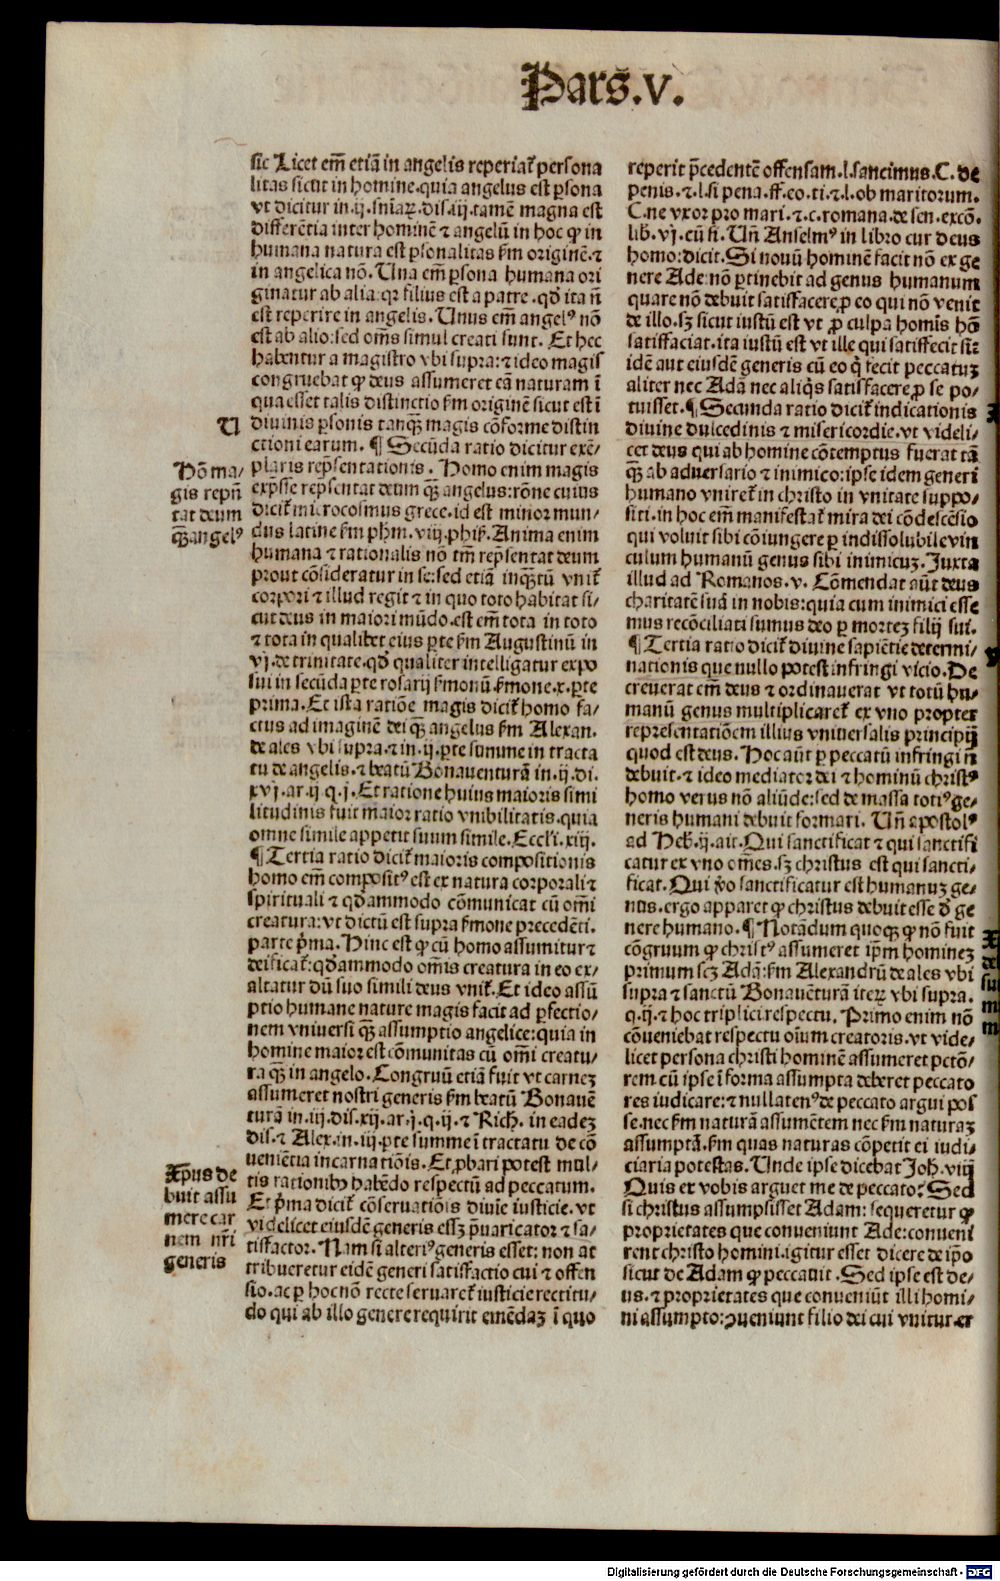 Pars̃.v.
sic Licet em̃ etiã in angelis reperiať persona
litas sicut in homine.quia angelus est ꝑsona
vt dicitur in.ij.sñiaꝝ.dis.iij.tamẽ magna est
differẽtia inter hominẽ ⁊ angelũ in hoc ꝙ in
humana natura est ꝑsonalitas ẜm originẽ.⁊
in angelica nõ. Una em̃ ꝑsona humana ori
ginatur ab alia:qꝛ filius est a patre.qđ ita ñ
est reperire in angelis. Unus em̃ angelꝰ nõ
est ab alio:sed om̃s simul creati sunt. Et hec
habentur a magistro vbi supra:⁊ ideo magis
congruebat ꝙ deus assumeret eã naturam ĩ
qua esset talis distinctio ẜm originẽ sicut est ĩ
U
diuinis ꝑsonis tanꝗ̃ magis cõforme distin
ctioni earum. ¶ Secũda ratio dicitur exẽ⸗
plaris repñsentationis. Homo enim magis
expͥsse repñsentat deum ꝗ̃ angelus:rõne cuius
diciť microcosmus grece.id est minor mun⸗
dus latine ẜm pħm.viij.phiẜ. Anima enim
humana ⁊ rationalis nõ tm̃ repñsentat deum
prout cõsideratur in se:sed etiã inꝗ̃tũ vniť
corpori ⁊ illud regit ⁊ in quo toto habitat si⸗
cut deus in maiori mũdo.est em̃ tota in toto
⁊ tota in qualibet eius ꝑte ẜm Augustinũ in
vj.de trinitate.qđ qualiter intelligatur expo
sui in secũda ꝑte rosarij ẜmonũ ẜmone.x.ꝑte
prima. Et ista ratiõe magis diciť homo fa⸗
ctus ad imaginẽ dei ꝗ̃ angelus ẜm Alexan.
de ales vbi supra.⁊ in.ij.ꝑte summe in tracta
tu de angelis.⁊ beatũ Bonauenturã in.ij.di.
xvj.ar.ij q.j. Et ratione huius maioris simi
litudinis fuit maior ratio vnibilitatis.quia
omne simile appetit suum simile. Eccľi.xiij.
¶ Tertia ratio diciť maioris compositionis
homo em̃ compositꝰ est ex natura corporali ⁊
spirituali ⁊ qđammodo cõmunicat cũ om̃i
creatura:vt dictũ est supra ẜmone precedẽti.
parte pͥma. Hinc est ꝙ cũ homo assumitur ⁊
deificať:qđammodo om̃is creatura in eo ex⸗
altatur dũ suo simili deus vniť. Et ideo assũ
ptio humane nature magis facit ad ꝑfectio⸗
nem vniuersi ꝗ̃ assumptio angelice:quia in
homine maior est cõmunitas cũ om̃i creatu⸗
ra ꝗ̃ in angelo. Congruũ etiã fuit vt carneꝫ
assumeret nostri generis ẜm beatũ Bonauẽ
turã in.iij.dis.xij.ar.j.q.ij.⁊ Rich. in eadeꝫ
dis.⁊ Alex.in.iij.ꝑte summe ĩ tractatu de cõ
ueniẽtia incarnatiõis. Et ꝓbari potest mul⸗
tis rationibꝰ habẽdo respectũ ad peccatum.
Et pͥma diciť cõseruatiõis diuie iusticie.vt
videlicet eiusdẽ generis esseꝫ pͣuaricator ⁊ sa⸗
tisfactor. Nam si alteriꝰ generis esset: non at
tribueretur eidẽ generi satisfactio cui ⁊ offen
sio.ac ꝑ hoc nõ recte seruareť iusticie rectitu⸗
do qui ab illo genere requirit emẽdaꝫ ĩ quo
Hõ ma⸗
gis repñ
tat deum
ꝗ̃ angelꝰ
Xp̃us de
buit assu
mere car
nem nr̃i
generis
reperit pͥcedentẽ offensam.l.sancimus.C. de
penis.⁊.l.si pena.ff.eo.ti.⁊.l.ob maritorum.
C.ne vxor pro mari.⁊.c.romana.de sen.excõ.
lib.vj.cũ si. Uñ Anselmꝰ in libro cur deus
homo:dicit. Si nouũ hominẽ facit nõ ex ge
nere Ade:nõ ꝑtinebit ad genus humanum
quare nõ debuit satisfacere ꝓ eo qui nõ venit
de illo.sꝫ sicut iustũ est vt ꝓ culpa homĩs hõ
satisfaciat.ita iustũ est vt ille qui satisfecit siť
idẽ aut eiusdẽ generis cũ eo qͥ fecit peccatuꝫ
aliter nec Adã nec aliqͥs satisfacere ꝓ se po⸗
tuisset. ¶ Secunda ratio diciť indicationis
diuine dulcedinis ⁊ misericordie.vt videli⸗
cet deus qui ab homine cõtemptus fuerat tã
ꝗ̃ ab aduersario ⁊ inimico:ipse idem generi
humano vnireť in christo in vnitate suppo⸗
siti.in hoc em̃ manifestať mira dei cõdescẽsio
qui voluit sibi cõiungere ꝑ indissolubile vin
culum humanũ genus sibi inimicuꝫ. Juxta
illud ad Romanos.v. Cõmendat aũt deus
charitatẽ suã in nobis:quia cum inimici esse
mus recõciliati sumus deo ꝑ morteꝫ filij sui.
¶ Tertia ratio diciť diuine sapiẽtie determi⸗
nationis que nullo potest infringi vicio. De
creuerat em̃ deus ⁊ ordinauerat vt totũ hu⸗
manũ genus multiplicareť ex vno propter
representatiõem illius vniuersalis principij
quod est deus. Hoc aũt ꝑ peccatũ infringi ñ
debuit.⁊ ideo mediator dei ⁊ hominũ christꝰ
homo verus nõ aliũde:sed de massa totiꝰ ge⸗
neris humani debuit formari. Uñ apostolꝰ
ad Heb.ij.ait. Qui sanctificat ⁊ qui sanctifi
catur ex vno om̃es.sꝫ christus est qui sancti⸗
ficat. Qui ꝟo sanctificatur est humanuꝫ ge⸗
nus.ergo apparet ꝙ christus debuit esse đ ge
nere humano. ¶ Notãdum quoqꝫ ꝙ nõ fuit
cõngruum ꝙ christꝰ assumeret ip̃m homineꝫ
primum scꝫ Adã:ẜm Alexandrũ de ales vbi
supra ⁊ sanctũ Bonauẽturã iteꝝ vbi supra.
q.ij.⁊ hoc triplici respectu. Primo enim nõ
cõueniebat respectu oĩum creatoris.vt vide⸗
licet persona christi hominẽ assumeret pctõ⸗
rem cũ ipse ĩ forma assumpta deberet peccato
res iudicare:⁊ nullatenꝰ de peccato argui pos
se.nec ẜm naturã assumẽtem nec ẜm naturaꝫ
assumptã.ẜm quas naturas cõpetit ei iudi⸗
ciaria potestas. Unde ipse dicebat Joh.viij
Quis ex vobis arguet me de peccato? Sed
si christus assumpsisset Adam: sequeretur ꝙ
proprietates que conueniunt Ade:conueni
rent christo homini.igitur esset dicere de ip̃o
sicut de Adam ꝙ peccauit. Sed ipse est de⸗
us.⁊ proprietates que conueniũt illi homi⸗
ni assumpto:ꝯueniunt filio dei cui vnitur.er